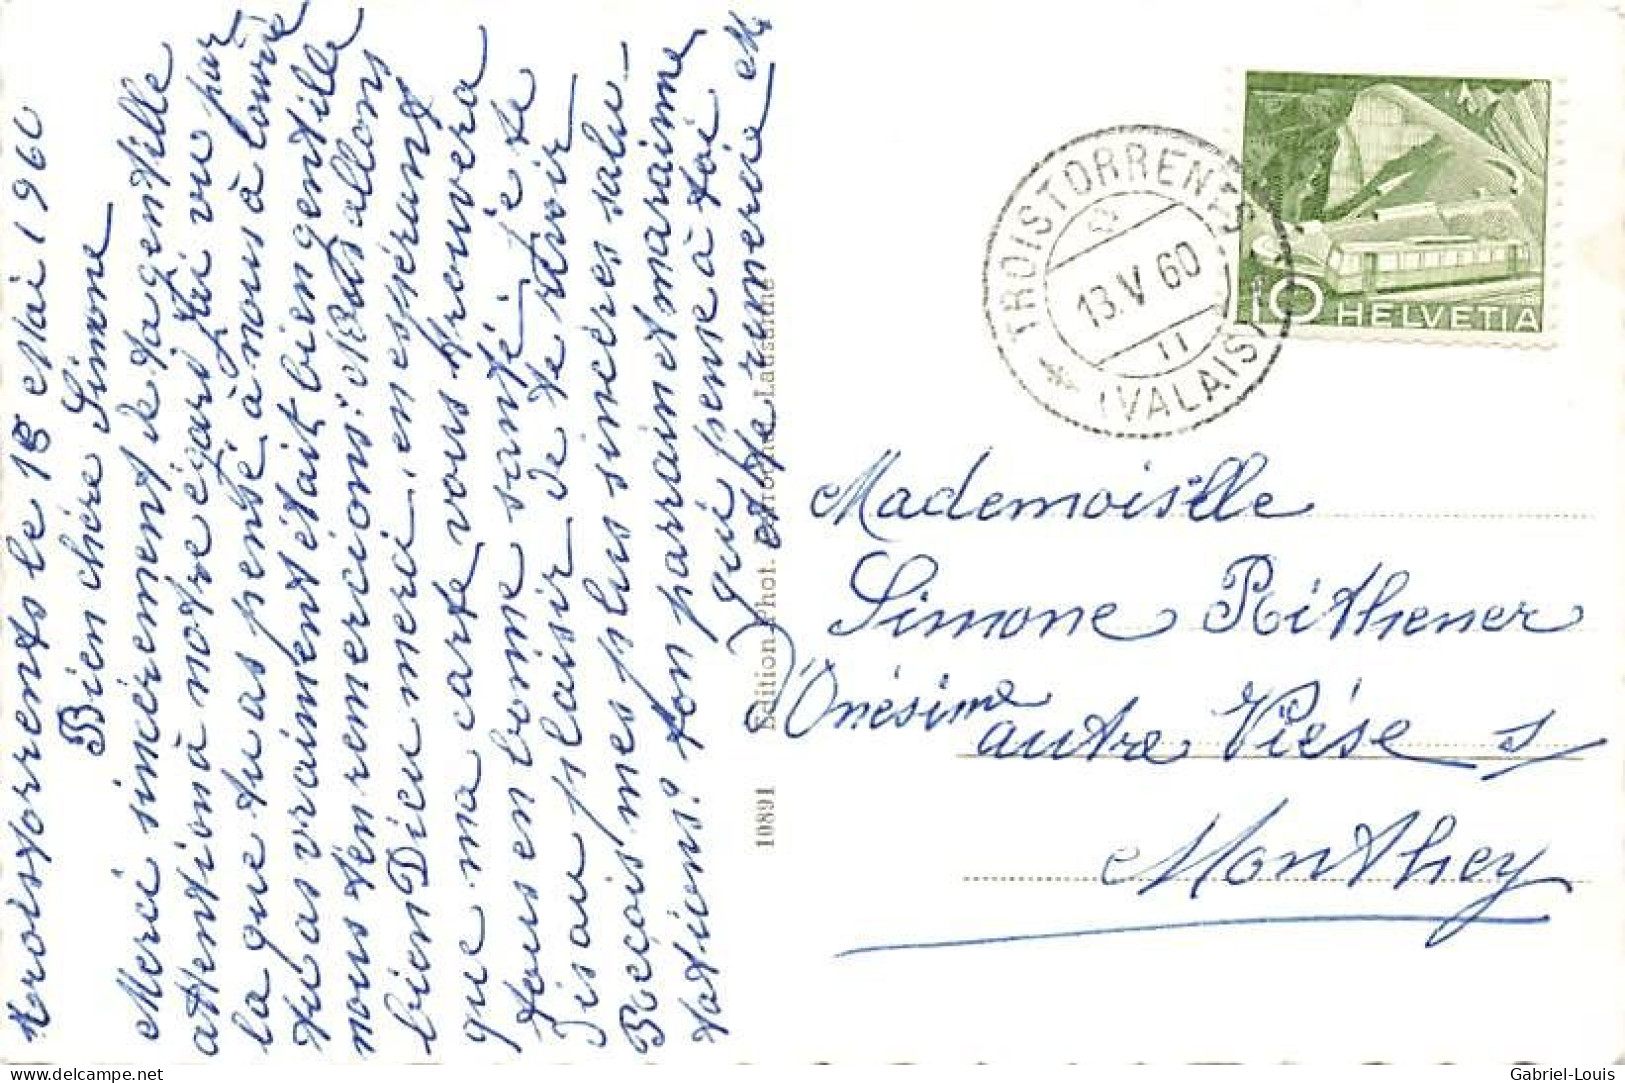 Troistorrents le 13 Mai 1960
Bien chère Simone
Merci sincèrement de ta gentille
attention à notre égard j'ai vu par
la que tu as pensé à nous à Lourde
tu as vraiment était bien gentille
nous t'en remercions: allons
bien Dieu merci, en espérant
que ma carte vous trouvera
tous en bonne santé, je te
dis au plaisir de te revoir
Reçois mes plus sincères salu-
tations: ton parrain et maraime
qui pense à toi
et te remercie
Onésime
10891 Edition Phot. Perrochet Lausanne
TROISTORRENTS
13.V.60
11
(VALAIS)
10 HELVETIA
Mademoiselle
Simone Rithener
autre Viése s/
Monthey
www.delcampe.net
Gabriel-Louis